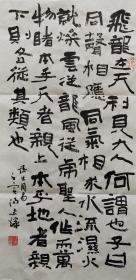 飛龍在天利見大人何謂也子曰
同聲相應同氣相求水流濕火
就燥雲從龍風從虎聖人作而萬
物睹本乎天者親上本乎地者親
下則各從其類也
周易